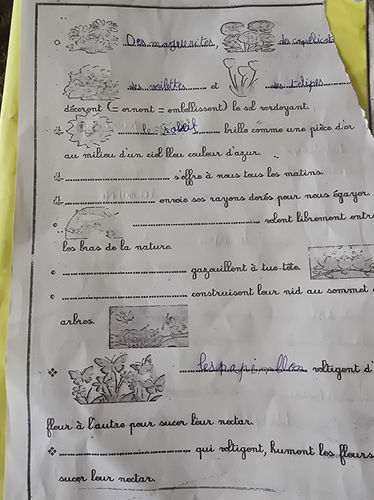 Des marguerites, des coquelicots
des violettes et des tulipes
décorent (= ornent = embellissent) le sol verdoyant.
le soleil brille comme une pièce d'or
au milieu d'un ciel bleu couleur d'azur.
s'offre à nous tous les matins.
envoie ses rayons dorés pour nous égayer.
volent librement entre
les bras de la nature.
gazouillent à tue-tête.
construisent leur nid au sommet
arbres.
les papillon voltigent d'
fleur à l'autre pour sucer leur nectar.
qui voltigent, hument les fleurs
sucer leur nectar.